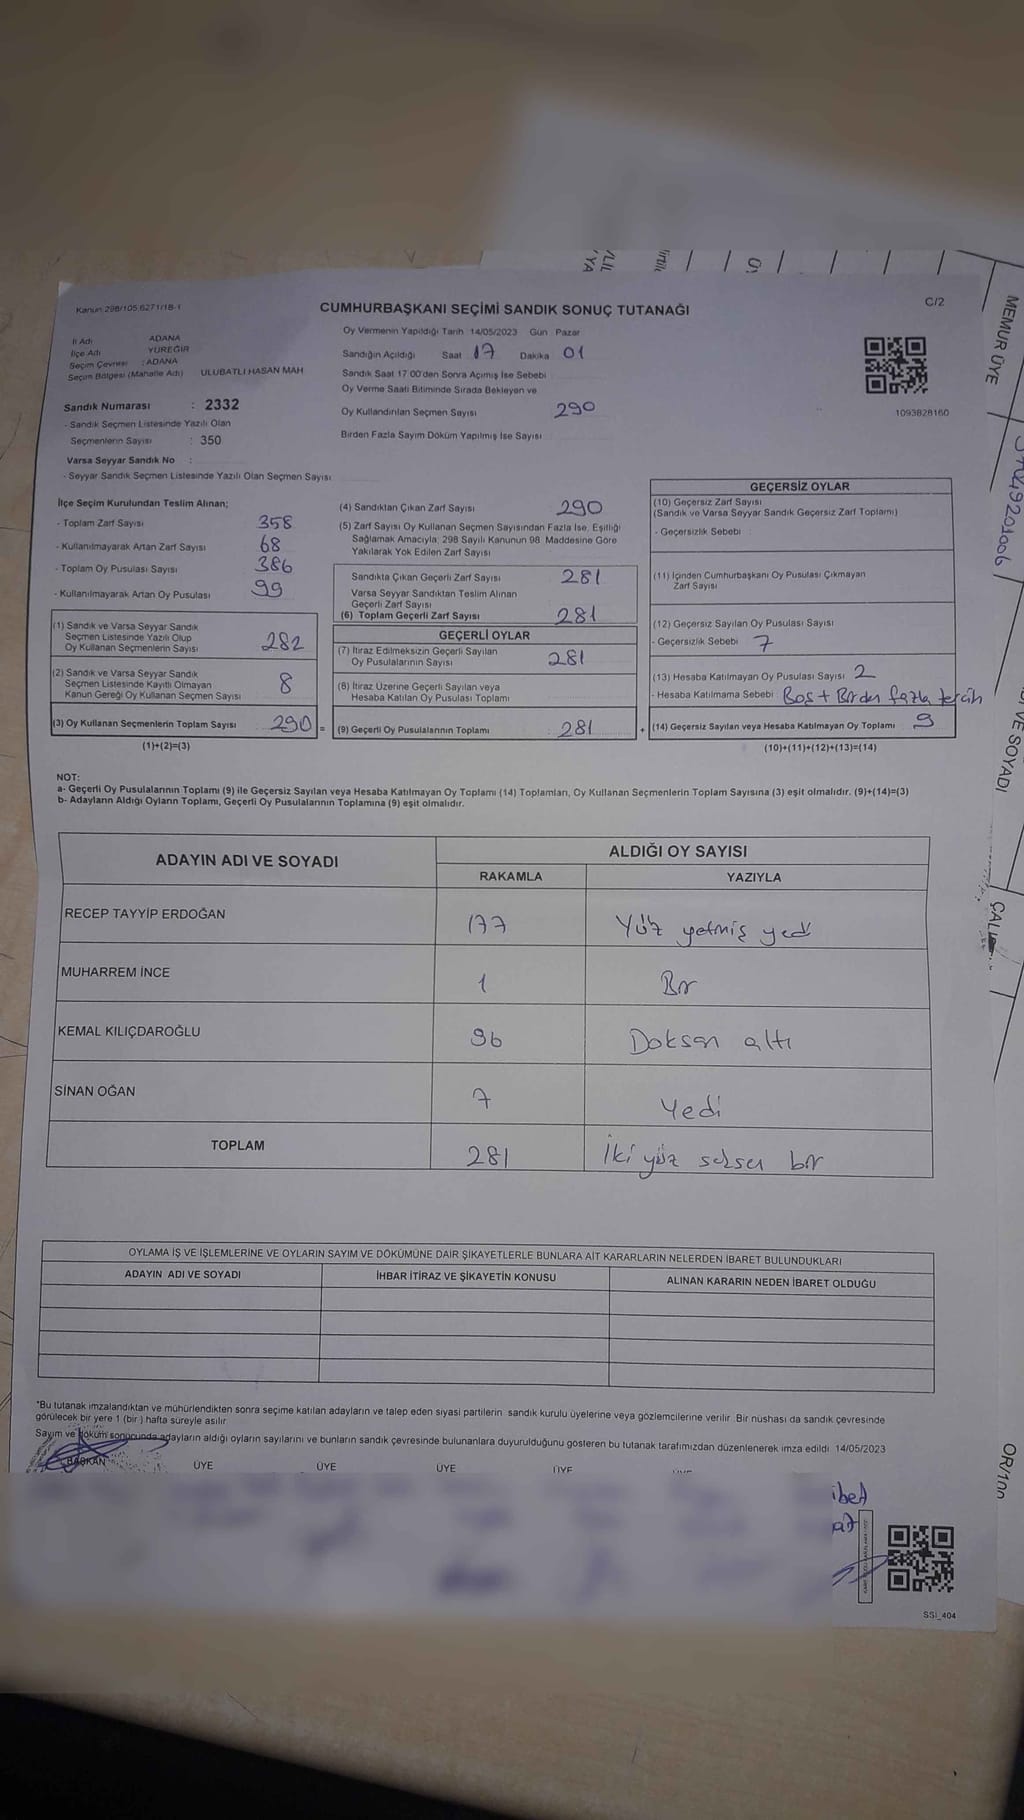 Kanun 298/105 6271/18-1
CUMHURBAŞKANI SEÇİMİ SANDIK SONUÇ TUTANAĞI
C/2
İl Adı ADANA
İlçe Adı YÜREĞİR
Seçim Çevresi : ADANA
Seçim Bölgesi (Mahalle Adı) ULUBATLI HASAN MAH
Oy Vermenin Yapıldığı Tarih 14/05/2023 Gün Pazar
Sandığın Açıldığı Saat 17 Dakika 01
Sandık Saat 17 00'den Sonra Açımış İse Sebebi
Oy Verme Saati Bitiminde Sırada Bekleyen ve
Oy Kullandırılan Seçmen Sayısı 290
Birden Fazla Sayım Döküm Yapılmış İse Sayısı
1093828160
Sandık Numarası : 2332
- Sandık Seçmen Listesinde Yazılı Olan
Seçmenlerin Sayısı : 350
Varsa Seyyar Sandık No :
- Seyyar Sandık Seçmen Listesinde Yazılı Olan Seçmen Sayısı
İlçe Seçim Kurulundan Teslim Alınan;
- Toplam Zarf Sayısı 358
- Kullanılmayarak Artan Zarf Sayısı 68
- Toplam Oy Pusulası Sayısı 386
- Kullanılmayarak Artan Oy Pusulası 99
(1) Sandık ve Varsa Seyyar Sandık
Seçmen Listesinde Yazılı Olup
Oy Kullanan Seçmenlerin Sayısı 282
(2) Sandık ve Varsa Seyyar Sandık
Seçmen Listesinde Kayıtlı Olmayan
Kanun Gereği Oy Kullanan Seçmen Sayısı 8
(3) Oy Kullanan Seçmenlerin Toplam Sayısı 290 =
(1)+(2)=(3)
(4) Sandıktan Çıkan Zarf Sayısı 290
(5) Zarf Sayısı Oy Kullanan Seçmen Sayısından Fazla İse, Eşitliği
Sağlamak Amacıyla, 298 Sayılı Kanunun 98. Maddesine Göre
Yakılarak Yok Edilen Zarf Sayısı
Sandıkta Çıkan Geçerli Zarf Sayısı 281
Varsa Seyyar Sandıktan Teslim Alınan
Geçerli Zarf Sayısı
(6) Toplam Geçerli Zarf Sayısı 281
GEÇERLİ OYLAR
(7) İtiraz Edilmeksizin Geçerli Sayılan
Oy Pusulalarının Sayısı 281
(8) İtiraz Üzerine Geçerli Sayılan veya
Hesaba Katılan Oy Pusulası Toplamı
(9) Geçerli Oy Pusulalarının Toplamı 281 +
GEÇERSİZ OYLAR
(10) Geçersiz Zarf Sayısı
(Sandık ve Varsa Seyyar Sandık Geçersiz Zarf Toplamı)
- Geçersizlik Sebebi
(11) İçinden Cumhurbaşkanı Oy Pusulası Çıkmayan
Zarf Sayısı
(12) Geçersiz Sayılan Oy Pusulası Sayısı
- Geçersizlik Sebebi 7
(13) Hesaba Katılmayan Oy Pusulası Sayısı 2
- Hesaba Katılmama Sebebi Boş + Birden fazla tercih
(14) Geçersiz Sayılan veya Hesaba Katılmayan Oy Toplamı 9
(10)+(11)+(12)+(13)=(14)
NOT:
a- Geçerli Oy Pusulalarının Toplamı (9) ile Geçersiz Sayılan veya Hesaba Katılmayan Oy Toplamı (14) Toplamları, Oy Kullanan Seçmenlerin Toplam Sayısına (3) eşit olmalıdır. (9)+(14)=(3)
b- Adayların Aldığı Oyların Toplamı, Geçerli Oy Pusulalarının Toplamına (9) eşit olmalıdır.
ADAYIN ADI VE SOYADI ALDIĞI OY SAYISI
RAKAMLA YAZIYLA
RECEP TAYYİP ERDOĞAN 177 Yüz yetmiş yedi
MUHARREM İNCE 1 Bir
KEMAL KILIÇDAROĞLU 96 Doksan altı
SİNAN OĞAN 7 Yedi
TOPLAM 281 İki yüz seksen bir
OYLAMA İŞ VE İŞLEMLERİNE VE OYLARIN SAYIM VE DÖKÜMÜNE DAİR ŞİKAYETLERLE BUNLARA AİT KARARLARIN NELERDEN İBARET BULUNDUKLARI
ADAYIN ADI VE SOYADI İHBAR İTİRAZ VE ŞİKAYETİN KONUSU ALINAN KARARIN NEDEN İBARET OLDUĞU
*Bu tutanak imzalandıktan ve mühürlendikten sonra seçime katılan adayların ve talep eden siyasi partilerin sandık kurulu üyelerine veya gözlemcilerine verilir. Bir nüshası da sandık çevresinde
görülecek bir yere 1 (bir) hafta süreyle asılır
Sayım ve döküm sonucunda adayların aldığı oyların sayılarını ve bunların sandık çevresinde bulunanlara duyurulduğunu gösteren bu tutanak tarafımızdan düzenlenerek imza edildi 14/05/2023
BAŞKAN ÜYE ÜYE ÜYE ÜYE
SSİ_404
MEMUR ÜYE
VE SOYADI